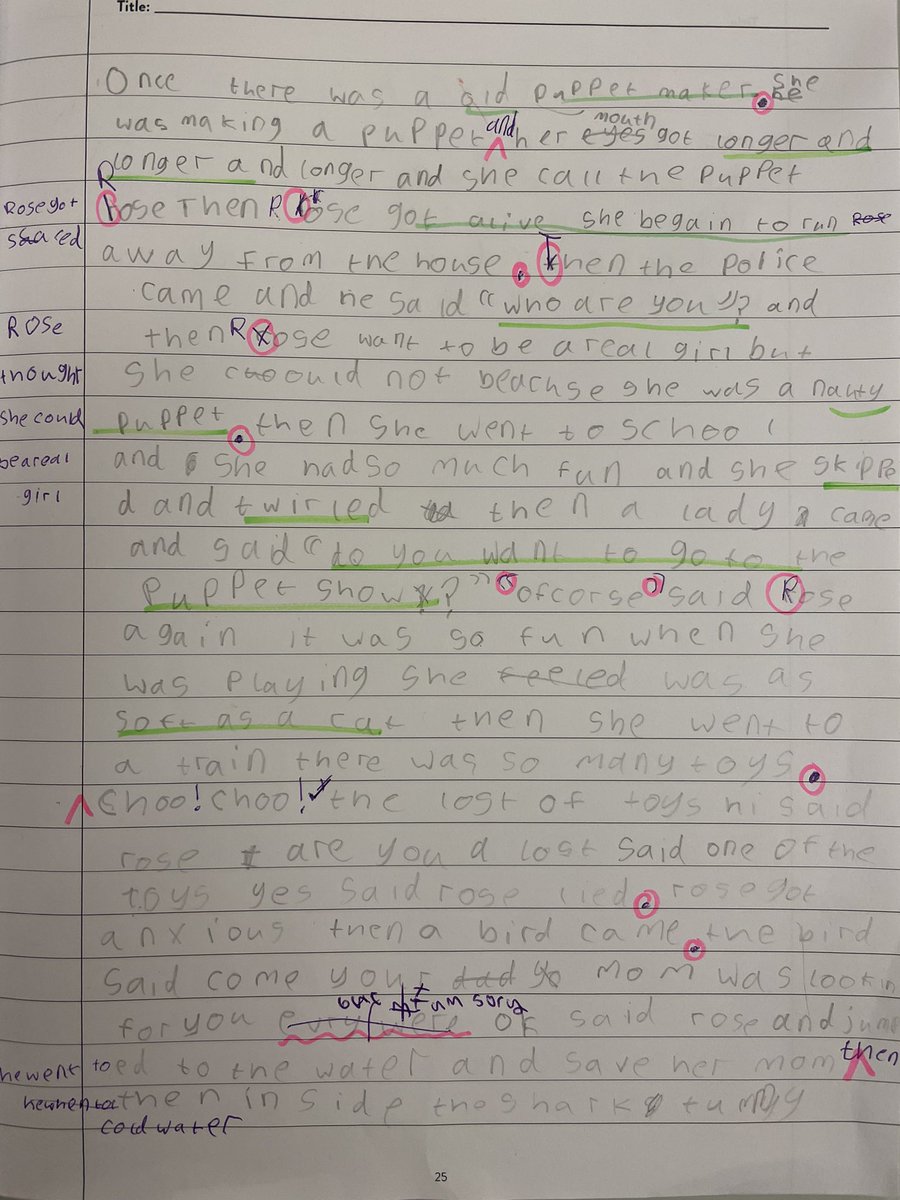 Title:
Once there was a old puppet maker. she
he
mouth
was making a puppet and her eyes got longer and
longer and longer and longer and she call the puppet
Rose got
Rose Then Rose got alive she begain to run Rose
scared
away from the house. Then the police
came and he said "who are you"? and
ROSe
then Rose want to be a real girl but
thought
she coould not beacuse she was a nauty
she could
puppet. then she went to school
be a real
and she had so much fun and she skippe
girl
d and twirled then a lady came
and said "to you want to go to the
puppet show?" "ofcorse" said Rose
again it was so fun when she
was playing she feeled was as
soft as a cat then she went to
a train there was so many toys.
Choo! choo! the lost of toys hi said
rose are you a lost said one of the
toys yes said rose lied. rose got
anxious then a bird came. the bird
said come your dad mom was lookin
um sory
for you ok said rose and jump
he went to
ed to the water and save her mom then
then in side the shark tummy
cold water
25